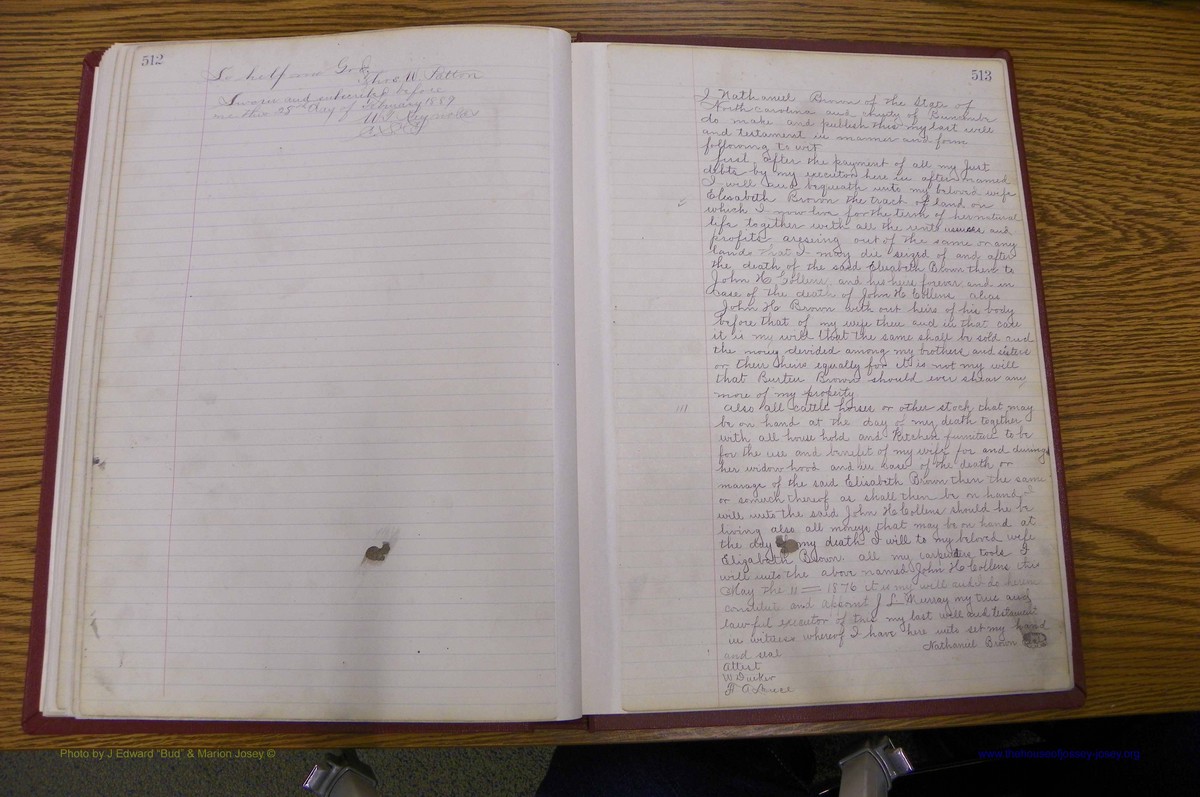 512
So help me God
Thos W Patton
Sworn and subscribed before
me this 28th day of February 1889
W T Reynolds
C S C
513
I Nathaniel Brown of the State of
North carolina and county of Buncombe
do make and publish this my last will
and testament in manner and form
following to wit
first after the payment of all my just
debts by my executor here in after named
I will and bequeath unto my beloved wife
Elisabeth Brown the tract of land on
which I now live for the term of her natural
life together with all the rents and
profits areseing out of the same or any
lands that I may die seized of and after
the death of the said Elizabeth Brown then to
John H Collens and his heirs forever and in
case of the death of John H Collens alias
John H Brown with out heirs of his body
before that of my wife then and in that case
it is my will that the same shall be sold and
the money devided among my brothers and sisters
or their heirs equally for it is not my will
that Burter Brown should ever shear any
more of my property
111
also all cattle horses or other stock that may
be on hand at the day of my death together
with all house hold and Kitchen furniture to be
for the use and benefit of my wife for and during
her widow hood and in case of the death or
marage of the said Elisabeth Brown then the same
or somuch thereof as shall then be on hand I
will unto the said John H Collens should he be
living also all moneys that may be on hand at
the day my death I will to my beloved wife
Elizabeth Brown all my tools I
will unto the above named John H Collens this
May the 11 = 1876 it is my will and I do herein
constitute and appoint J L Murray my true and
lawful executor of this my last will and testament
in witness whereof I have here unto set my hand
and seal
Nathaniel Brown
Attest
W Ducker
Photo by J Edward "Bud" & Marion Josey ©
www.thehouseofjossey-josey.org